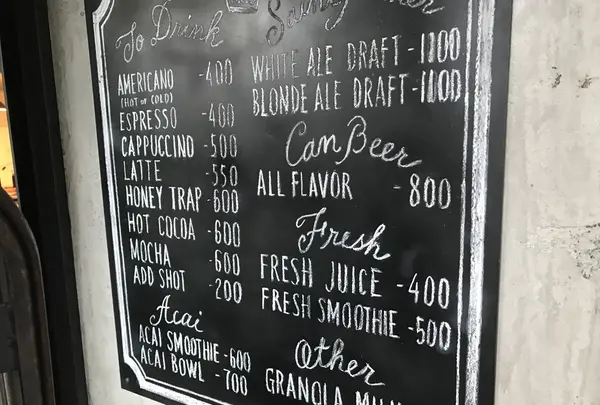 To Drink
AMERICANO -400
(HOT or COLD)
ESPRESSO -400
CAPPUCCINO -500
LATTE -550
HONEY TRAP -600
HOT COCOA -600
MOCHA -600
ADD SHOT -200
Acai
ACAI SMOOTHIE -600
ACAI BOWL -700
WHITE ALE DRAFT -1100
BLONDE ALE DRAFT -1100
Can Beer
ALL FLAVOR -800
Fresh
FRESH JUICE -400
FRESH SMOOTHIE -500
Other
GRANOLA